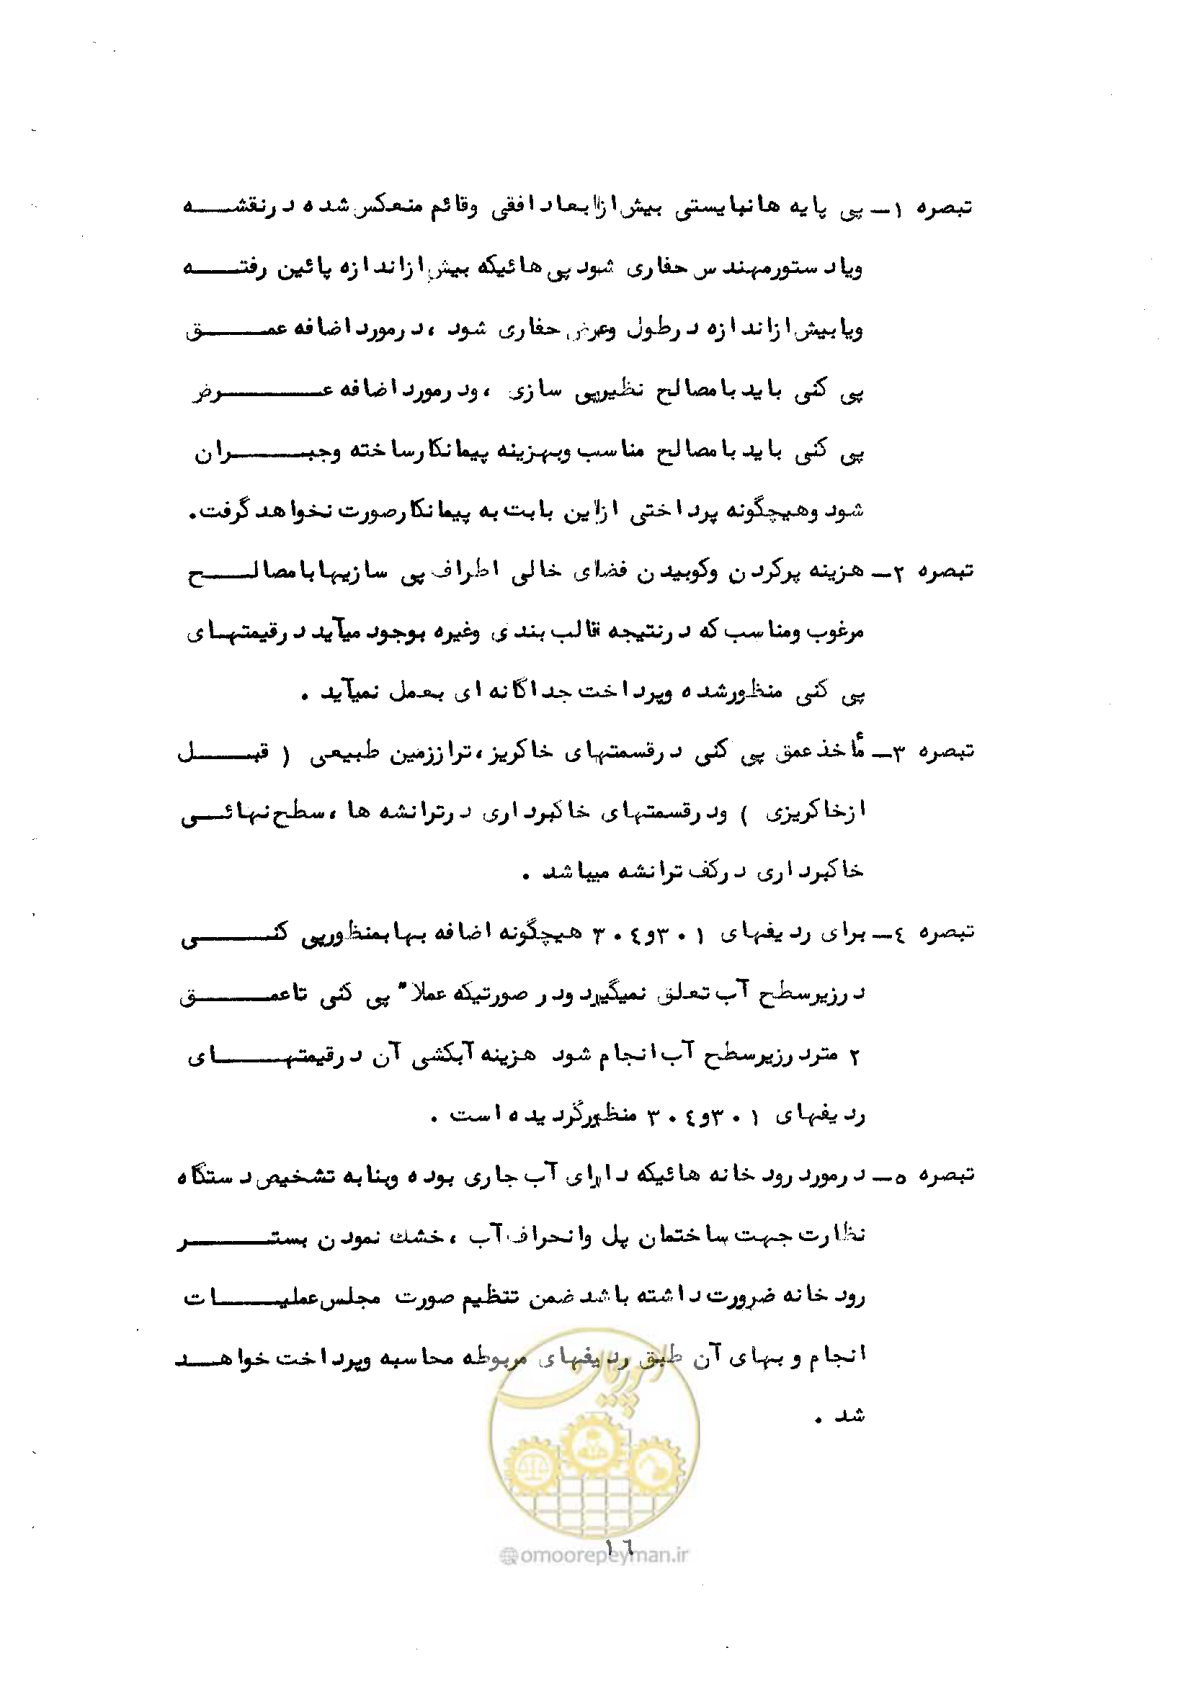 تبصره ۱ـ پی پایه ها نبایستی بیش از ابعاد افقی وقائم منعکس شده درنقشـــه
ویا دستورمهندس حفاری شود پی هائیکه بیش ازاندازه پائین رفتـــه
ویا بیش ازاندازه درطول وعرض حفاری شود ، درمورد اضافه عمـــق
پی کنی باید با مصالح نظیرپی سازی ، ودرمورد اضافه عـــرض
پی کنی باید با مصالح مناسب وبهزینه پیمانکارساخته وجبـــران
شود وهیچگونه پرداختی ازاین بابت به پیمانکارصورت نخواهد گرفت.
تبصره ۲ـ هزینه پرکردن وکوبیدن فضای خالی اطراف پی سازیها با مصالـــح
مرغوب ومناسب که درنتیجه قالب بندی وغیره بوجود میآید درقیمتهـای
پی کنی منظورشده وپرداخت جداگانه ای بعمل نمیآید .
تبصره ۳ـ مأخذ عمق پی کنی درقسمتهای خاکریز ، ترازمین طبیعی ( قبـــل
ازخاکریزی ) ودرقسمتهای خاکبرداری درترانشه ها ، سطح نهائـــی
خاکبرداری درکف ترانشه میباشد .
تبصره ٤ـ برای ردیفهای ۳۰۱ و ۳۰٤ هیچگونه اضافه بها بمنظورپی کنـــی
درزیرسطح آب تعلق نمیگیرد ودر صورتیکه عملا" پی کنی تاعمـــق
۲ متردرزیرسطح آب انجام شود هزینه آبکشی آن درقیمتهـــای
ردیفهای ۳۰۱ و ۳۰٤ منظورگردیده است .
تبصره ٥ـ درمورد رودخانه هائیکه دارای آب جاری بوده وبنابه تشخیص دستگاه
نظارت جهت ساختمان پل وانحراف آب ، خشك نمودن بستـــر
رودخانه ضرورت داشته باشد ضمن تنظیم صورت مجلس عملیـــات
انجام و بهای آن طبق ردیفهای مربوطه محاسبه وپرداخت خواهـــد
شد .
امور پیمان
١٦
@omoorepeyman.ir